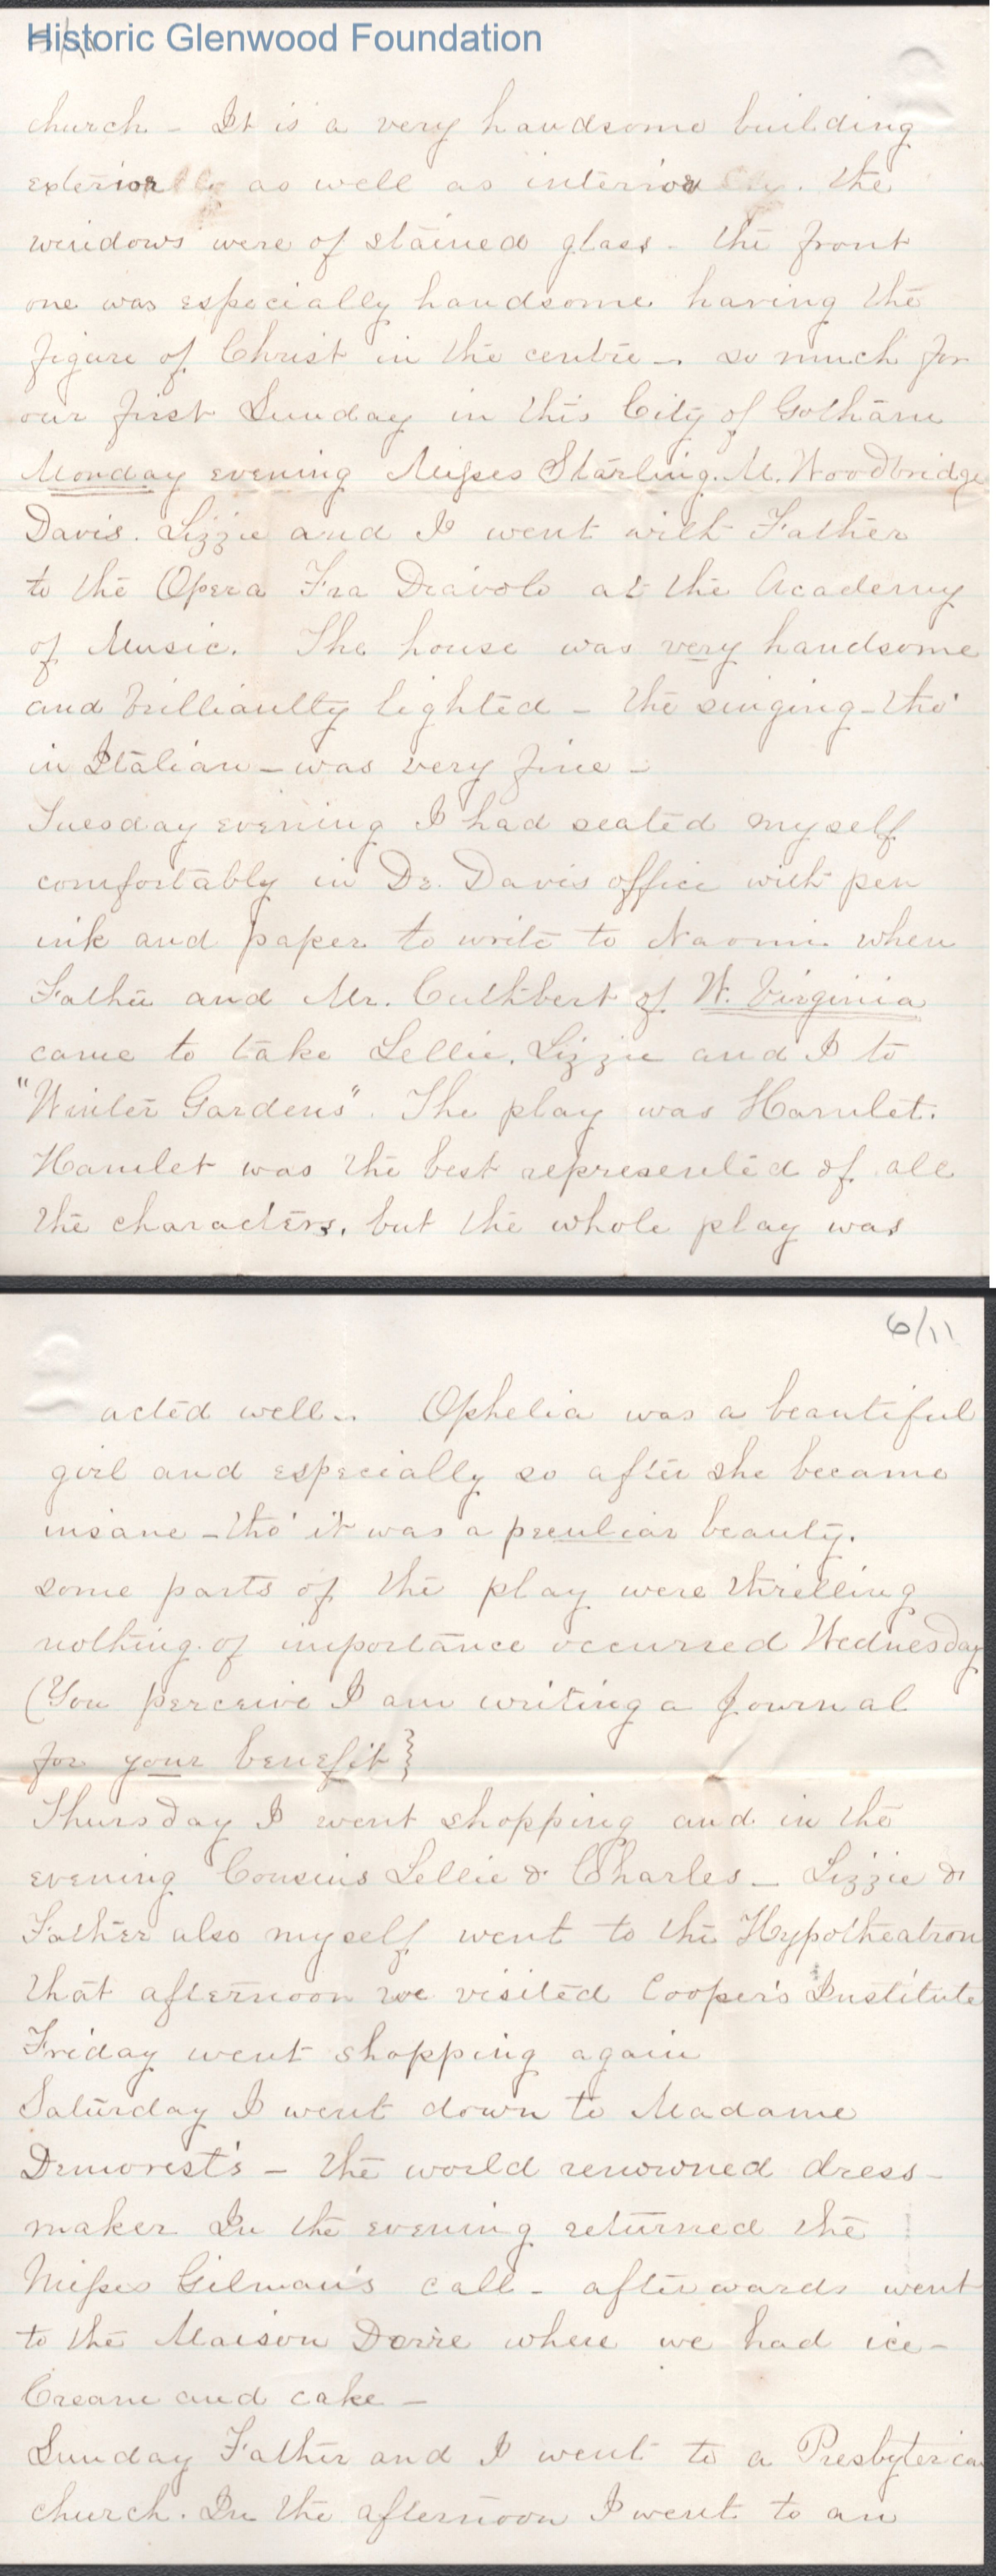 Historic Glenwood Foundation
church - It is a very handsome building
exterior as well as interior. the
windows were of stained glass - the front
one was especially handsome having the
figure of Christ in the centre -. so much for
our first Sunday in this City of Gotham
Monday evening Misses Starling. M. Woodbridge
Davis. Lizzie and I went with Father
to the Opera Fra Diavolo at the Academy
of Music. The house was very handsome
and brilliantly lighted - the singing - tho'
in Italian - was very fine -
Tuesday evening I had seated myself
comfortably in Dr. Davis office with pen
ink and paper to write to Naomi when
Father and Mr. Cuthbert of W. Virginia
came to take Lellie. Lizzie and I to
"Winter Gardens". The play was Hamlet.
Hamlet was the best represented of all
the characters. but the whole play was
6/11
acted well.. Ophelia was a beautiful
girl and especially so after she became
insane - tho' it was a peculiar beauty.
some parts of the play were thrilling
nothing of importance occurred Wednesday
(You perceive I am writing a journal
for your benefit}
Thursday I went shopping and in the
evening Cousins Lellie & Charles - Lizzie &
Father also myself went to the Hypotheatron
that afternoon we visited Cooper's Institute
Friday went shopping again
Saturday I went down to Madame
Demorest's - the world renowned dress-
maker In the evening returned the
Misses Gilman's call - afterwards went
to the Maison Dorre where we had ice-
Cream and cake -
Sunday Father and I went to a Presbyterian
church. In the afternoon I went to an